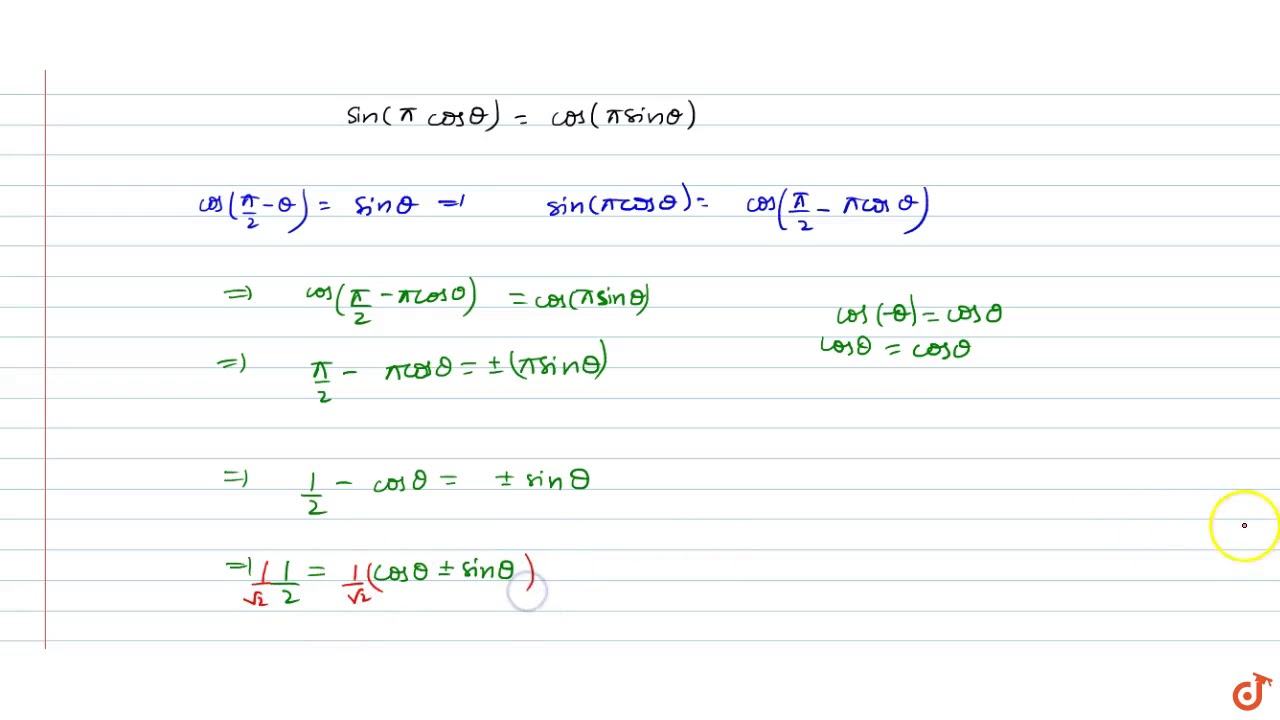 sin(π cosθ) = cos(π sinθ)
cos(π/2 - θ) = sinθ ⇒ sin(πcosθ) = cos(π/2 - πcosθ)
⇒ cos(π/2 - πcosθ) = cos(πsinθ)
cos(-θ) = cosθ
cosθ = cosθ
⇒ π/2 - πcosθ = ±(πsinθ)
⇒ 1/2 - cosθ = ± sinθ
⇒ 1/√2 1/2 = 1/√2 (cosθ ± sinθ)